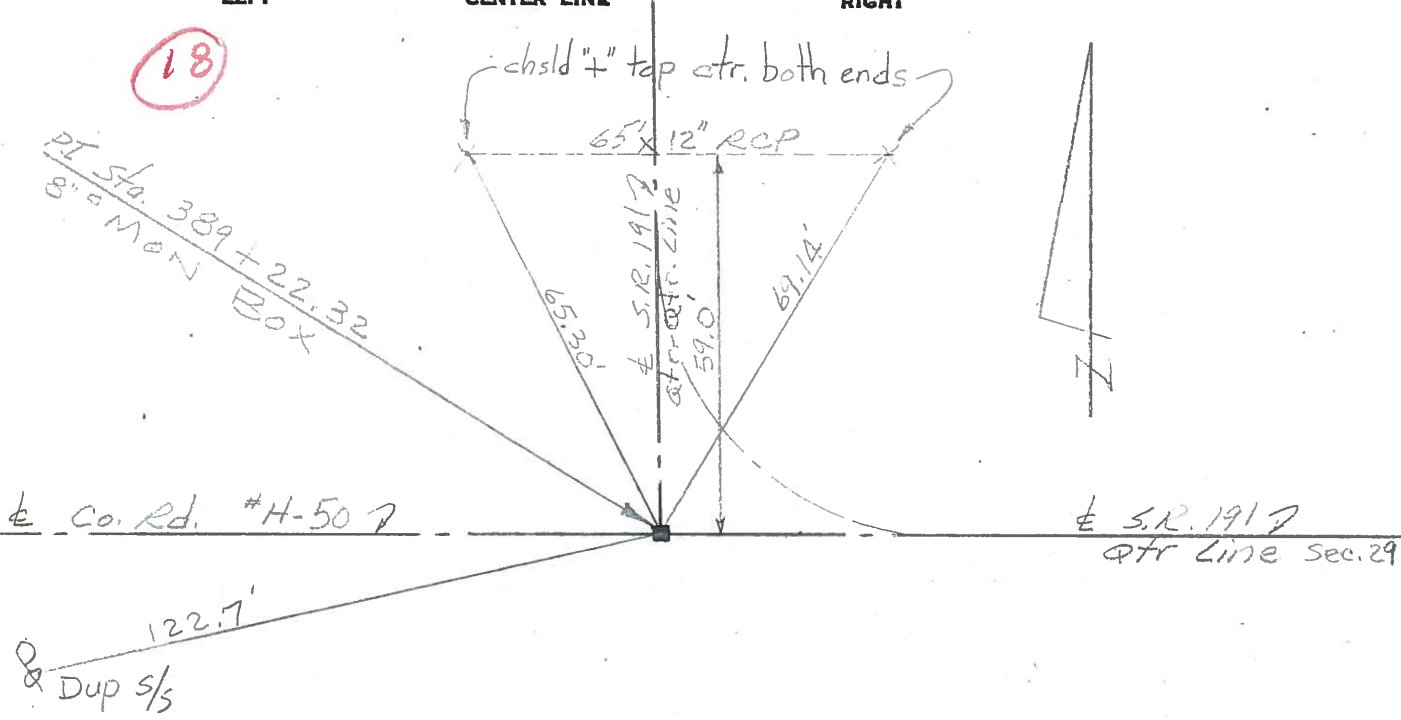 LEFT
CENTER LINE
RIGHT
18
chsld "+" top ctr. both ends
65' x 12" RCP
PI Sta. 389+22.32
8" MON
BOX
65.30'
℄ S.R. 191
Qtr-Qtr. Line
59.0'
69.14'
Z
℄ Co. Rd. #H-50
℄ S.R. 191
Qtr Line Sec. 29
122.7'
Dup S/S